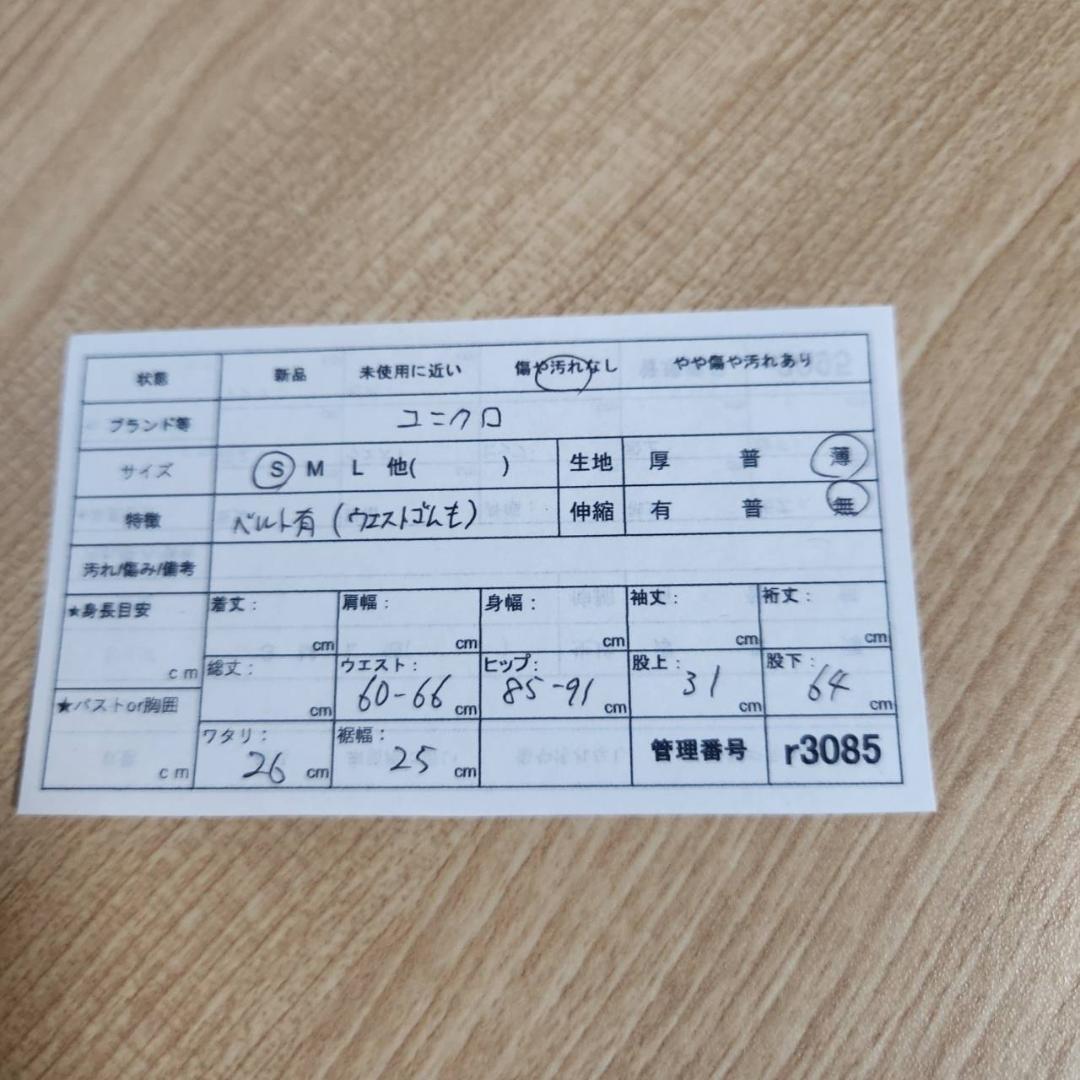 状態 新品 未使用に近い 傷や汚れなし やや傷や汚れあり
ブランド等 ユニクロ
サイズ S M L 他( ) 生地 厚 普 薄
特徴 ベルト有(ウエストゴムも) 伸縮 有 普 無
汚れ/傷み/備考
★身長目安 cm 着丈: cm 肩幅: cm 身幅: cm 袖丈: cm 裄丈: cm
総丈: cm ウエスト: 60-66 cm ヒップ: 85-91 cm 股上: 31 cm 股下: 64 cm
★バストor胸囲 cm ワタリ: 26 cm 裾幅: 25 cm 管理番号 r3085